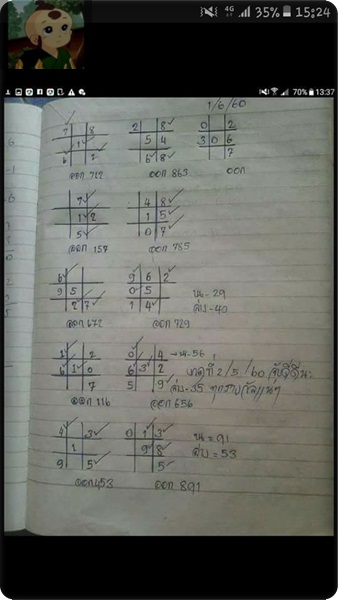 4G 35% 15:24
70% 13:37
1/6/60
7 8
1
6 7
ออก 712
2 8
5 4
6 8
ออก 865
0 2
3 0 6
7
ออก
7
1 2
5
ออก 157
4 8
1 5
0 7
ออก 785
6
9 5
2 7
ออก 672
9 6 2
0 5
1 4
ออก 729
บน - 29
ล่าง - 40
1 2
6 1 0
7
ออก 116
0 4
6 3 2
5 9
ออก 656
→บน-56
งวดที่ 2/5/60
ล่าง-35
4 3
1
9 5
ออก 453
0 1 3
9 8
5
ออก 891
บน = 91
ล่าง = 53